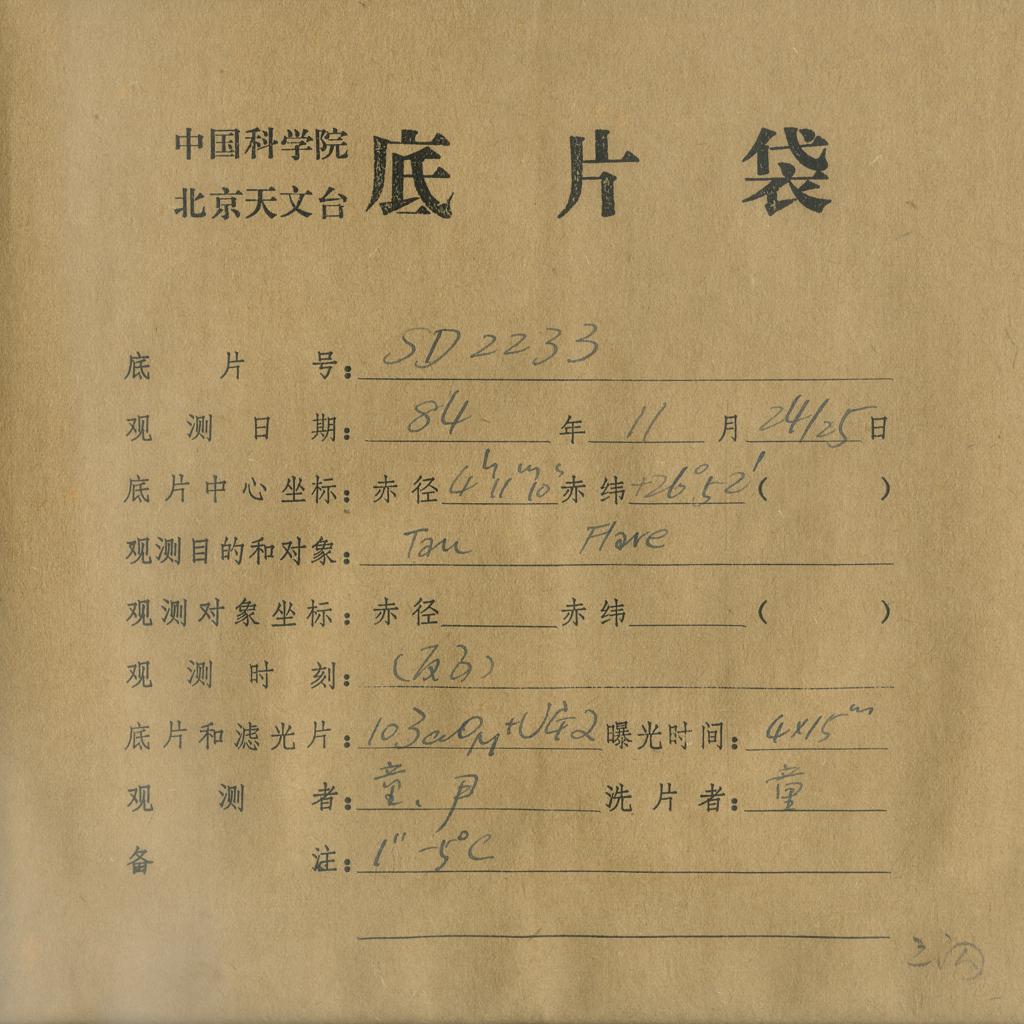 中国科学院
北京天文台
底片袋
底片号：SD2233
观测日期：84年11月24/25日
底片中心坐标：赤径4h11m10s赤纬+26°52′（ ）
观测目的和对象：Tau Flare
观测对象坐标：赤径 赤纬 （ ）
观测时刻：
底片和滤光片：103aO+UG2 曝光时间：4×15m
观测者：童、尹 洗片者：童
备注：1″ -5°C